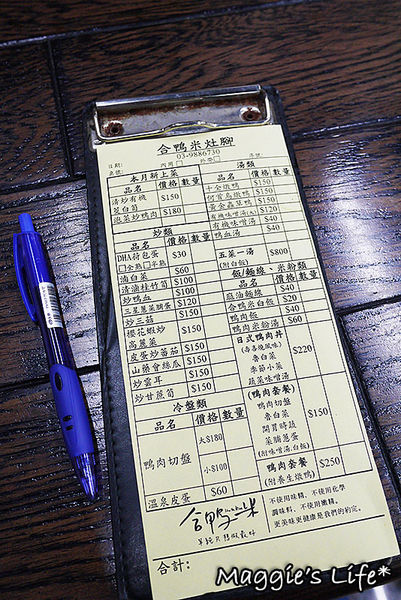 合鴨米灶腳
03-9886730
日期:
桌號:
內用□
外帶□
本月新上菜
品名 價格 數量
清炒有機茭白筍 $150
泡菜炒鴨肉 $180
炒類
品名 價格 數量
DHA荷包蛋 □全熟□半熟 $30
滷白菜 $60
清滷桂竹筍 $100
炒鴨血 $120
三星蔥菜脯蛋 $120
炒三菇 $150
櫻花蝦炒高麗菜 $150
皮蛋炒番茄 $150
山藥會絲瓜 $150
炒雲耳 $150
炒甘蔗筍 $150
冷盤類
品名 價格 數量
鴨肉切盤 大$180
小$100
溫泉皮蛋 $60
湯類
品名 價格 數量
十全燉鴨 $150
何首烏燉鴨 $150
黃金蟲草鴨 $150
有機味噌湯(大) $120
有機味噌湯 $40
鴨血湯 $40
五菜一湯 (附白飯) $800
飯/麵線、米粉類
品名 價格 數量
麻油麵線 $40
合鴨米白飯 $20
鴨肉飯 $40
鴨肉米粉湯 $60
日式鴨肉丼
(壽喜燒風味)
魯白菜
季節小菜
蔬菜味噌湯
$220
(鴨肉套餐)
鴨肉切盤
魯白菜
開胃時蔬
菜脯蔥蛋
(附味噌湯.白飯)
$150
(鴨肉套餐)
(附養生燉鴨)
$250
不使用味精、不使用化學
調味料、不使用嫩精。
更美味更健康是我們的約定。
合鴨米
合計:
Maggie's Life*